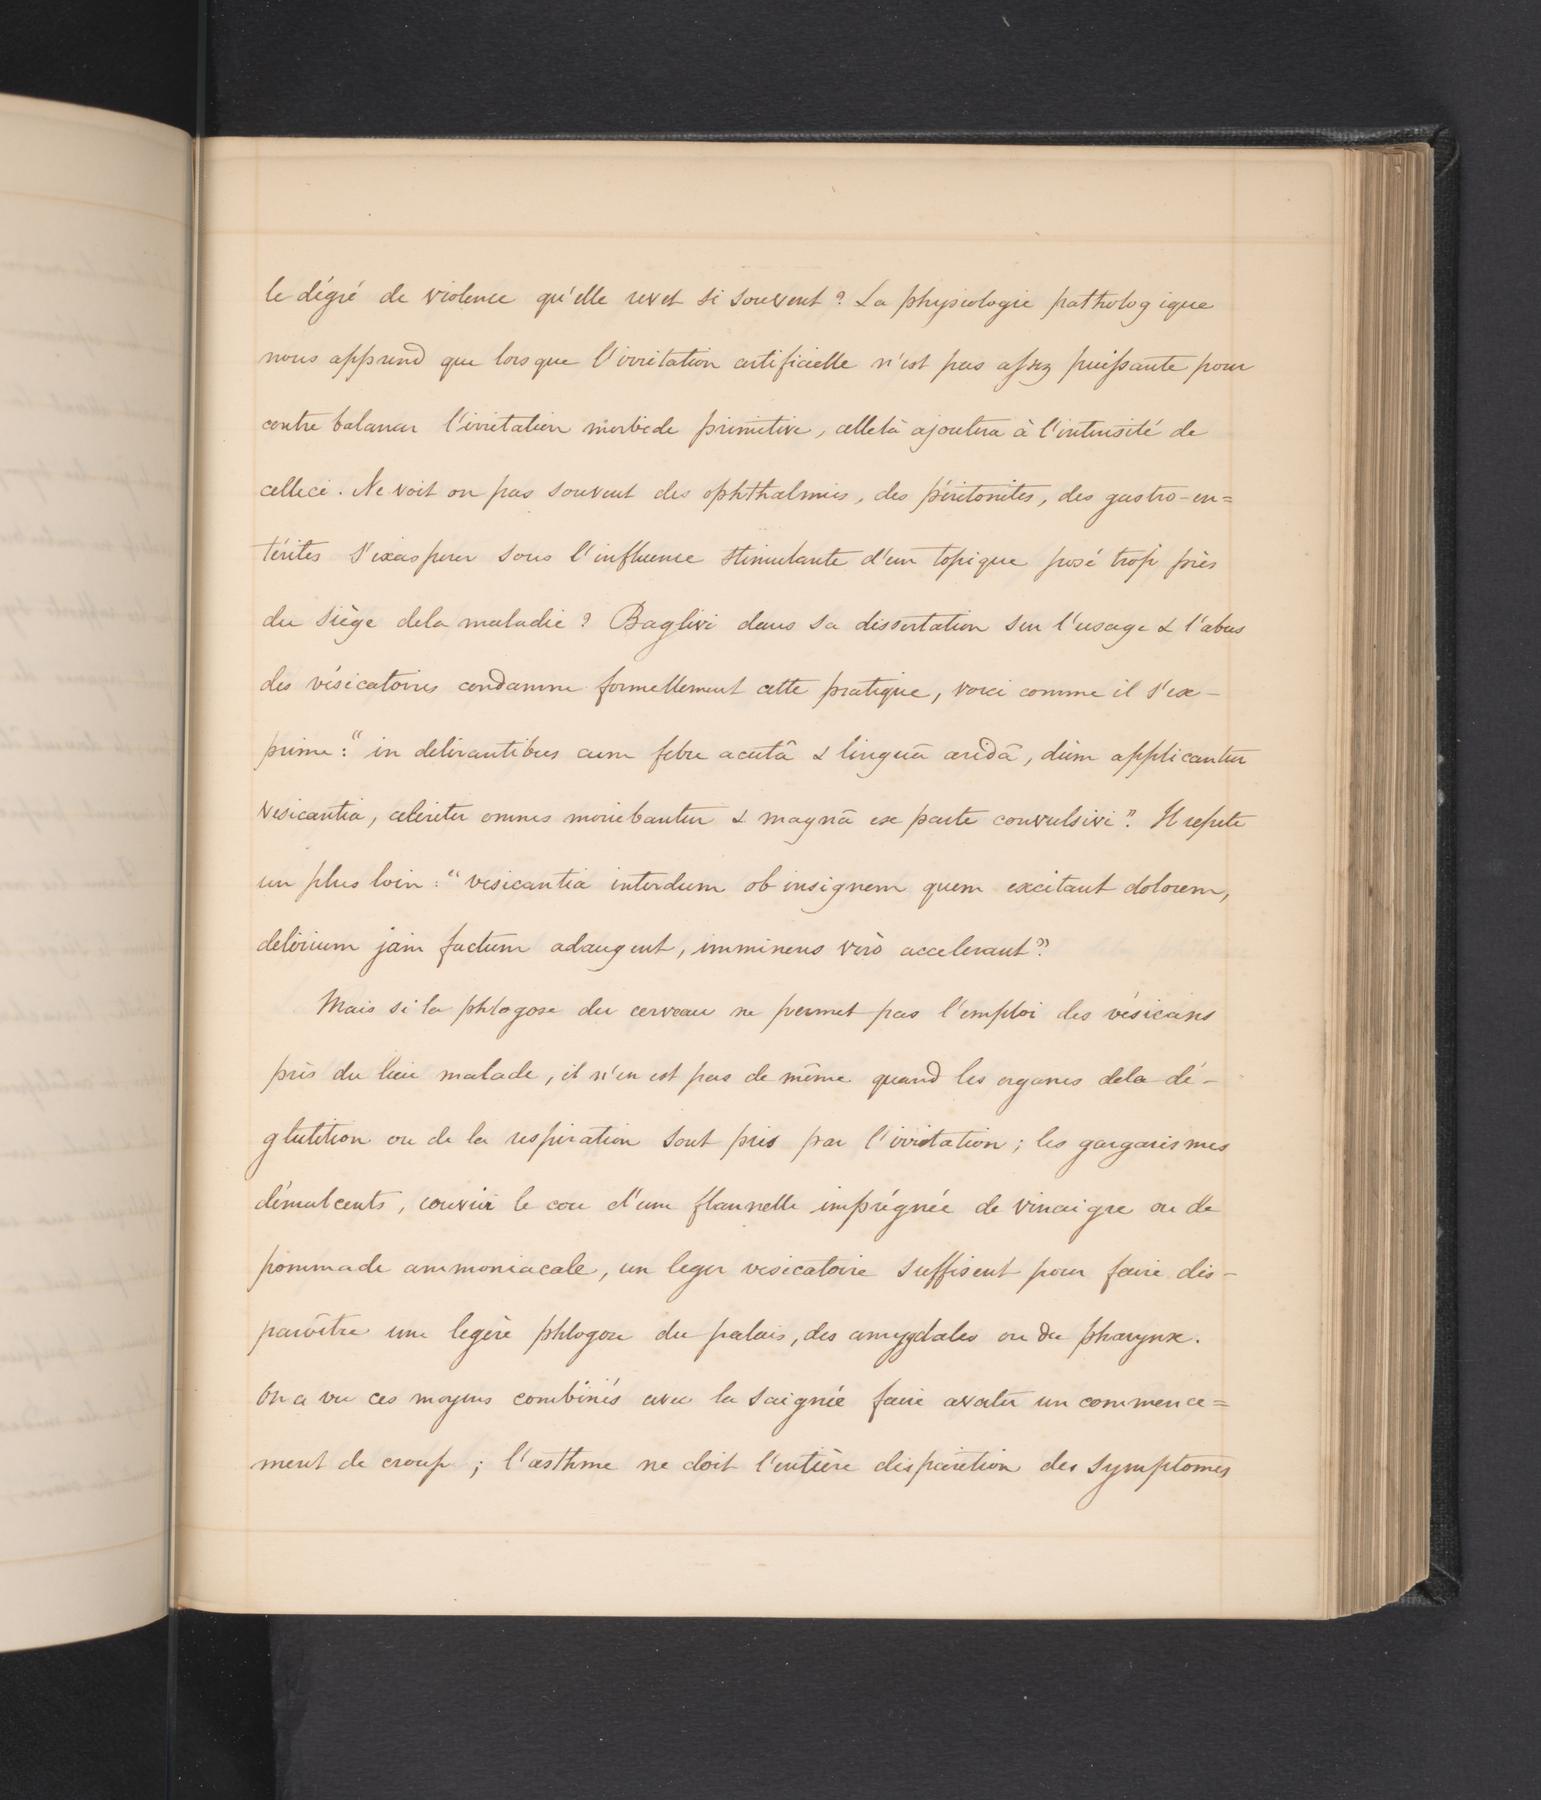 le dégré de violence qu'elle revet si souvent ? La physiologie pathologique
nous apprend que lorsque l'irritation artificielle n'est pas assez puissante pour
contre balancer l'irritation morbide primitive, cellelà ajoutera à l'intensité de
celleci. Ne voit on pas souvent des ophthalmies, des péritonites, des gastro-en=
térites s'exaspérer sous l'influence stimulante d'un topique posé trop près
du siège dela maladie ? Baglivi dans sa dissertation sur l'usage & l'abus
des vésicatoires condamne formellement cette pratique, voici comme il s'ex-
prime : "in delirantibus cum febre acutâ & linguâ aridâ, dùm applicantur
vesicantia, celeriter omnes moriebantur & magnâ ex parte convulsivi". Il repete
un plus loin : "vesicantia interdum ob insignem quem excitant dolorem,
delirium jam factum adaugent, imminens verò accelerant"
Mais si la phlogose du cerveau ne permet pas l'emploi des vésicans
près du lieu malade, il n'en est pas de même quand les organes dela dé-
glutition ou de la respiration sont pris par l'irritation ; les gargarismes
démulcents, couvrir le cou d'une flannelle imprégnée de vinaigre ou de
pommade ammoniacale, un leger vesicatoire suffisent pour faire dis-
paroître une legère phlogose du palais, des amygdales ou du pharynx.
On a vu ces moyens combinés avec la saignée faire avorter un commence=
ment de croup ; l'asthme ne doit l'entière disparition des symptomes